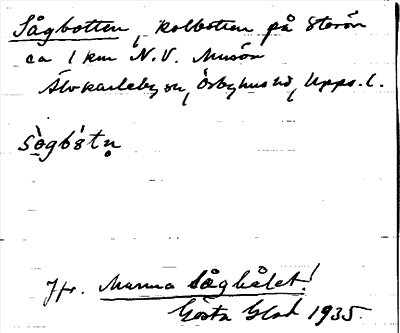 Sågbotten, kolbotten på Storön
ca 1 km N.V. Musön
Älvkarleby sn, Örbyhus hd, Upps. l.
sògbótn̥
Jfr. Manna Såghålet!
Gösta Glad 1935.